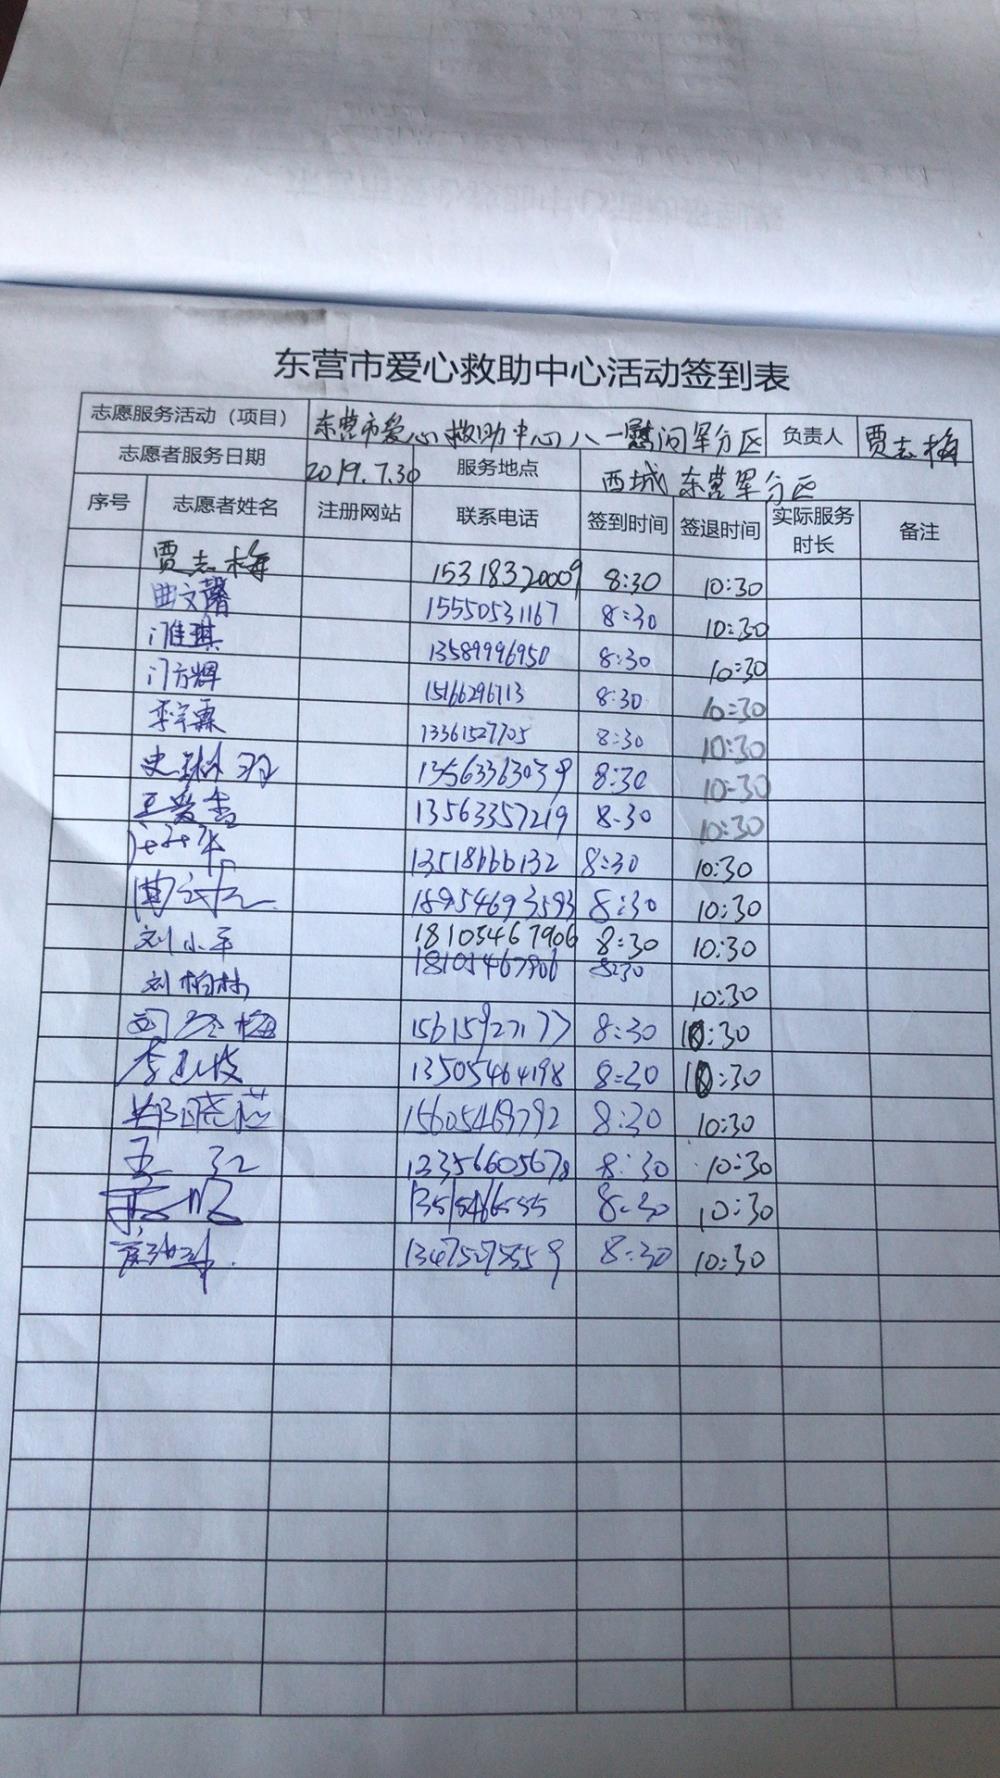 东营市爱心救助中心活动签到表
志愿服务活动（项目） 东营市爱心救助中心八一慰问军分区 负责人 贾志梅
志愿者服务日期 2019.7.30 服务地点 西城 东营军分区
序号 志愿者姓名 注册网站 联系电话 签到时间 签退时间 实际服务时长 备注
贾志梅 15318320009 8:30 10:30
曲文馨 15550531167 8:30 10:30
13589996950 8:30 10:30
门方辉 15166296713 8:30 10:30
李宗霖 13361527705 8:30 10:30
13563363039 8:30 10:30
王爱 13563357219 8.30 10:30
13518666132 8:30 10:30
18954693593 8:30 10:30
刘小平 18105467906 8:30 10:30
刘柏林 18105467906 8:30 10:30
15615927177 8:30 10:30
13505464198 8:30 10:30
郑晓芯 15605469792 8:30 10:30
13356605678 8:30 10:30
8:30 10:30
13475275559 8:30 10:30